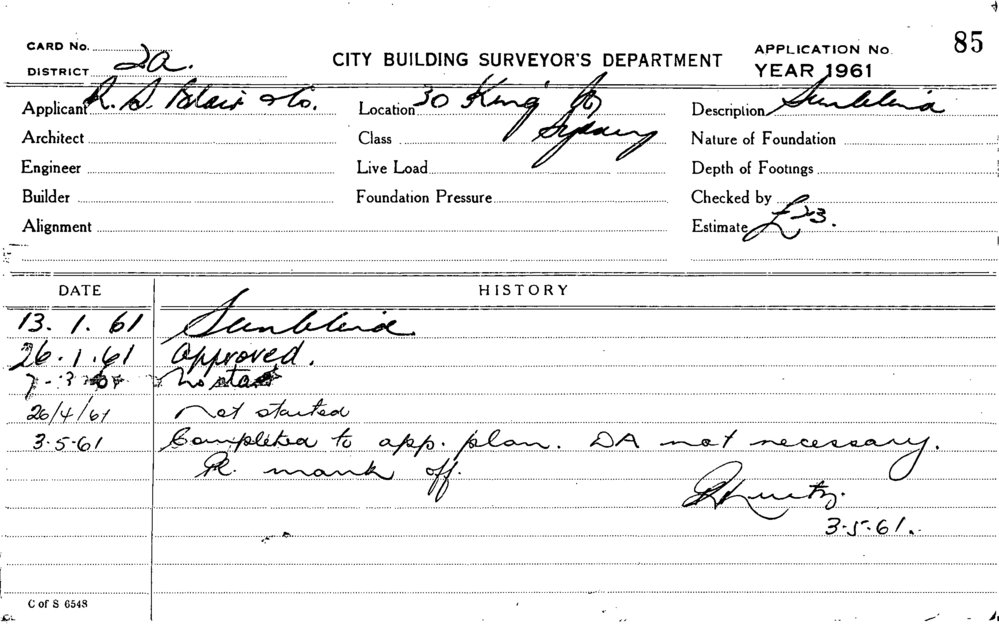 CARD No. 2a.
DISTRICT
CITY BUILDING SURVEYOR'S DEPARTMENT
APPLICATION No. 85
YEAR 1961
Applicant R. S. Blair & Co.
Location 30 King St
Sydney
Description Sunblind
Architect
Class
Nature of Foundation
Engineer
Live Load
Depth of Footings
Builder
Foundation Pressure
Checked by
Alignment
Estimate £23.
DATE HISTORY
13.1.61 Sunblind.
26.1.61 Approved.
7-3 No start
26/4/61 Not started
3-5-61 Completed to app. plan. DA not necessary.
Pl. mark off.
3-5-61.
C of S 6548